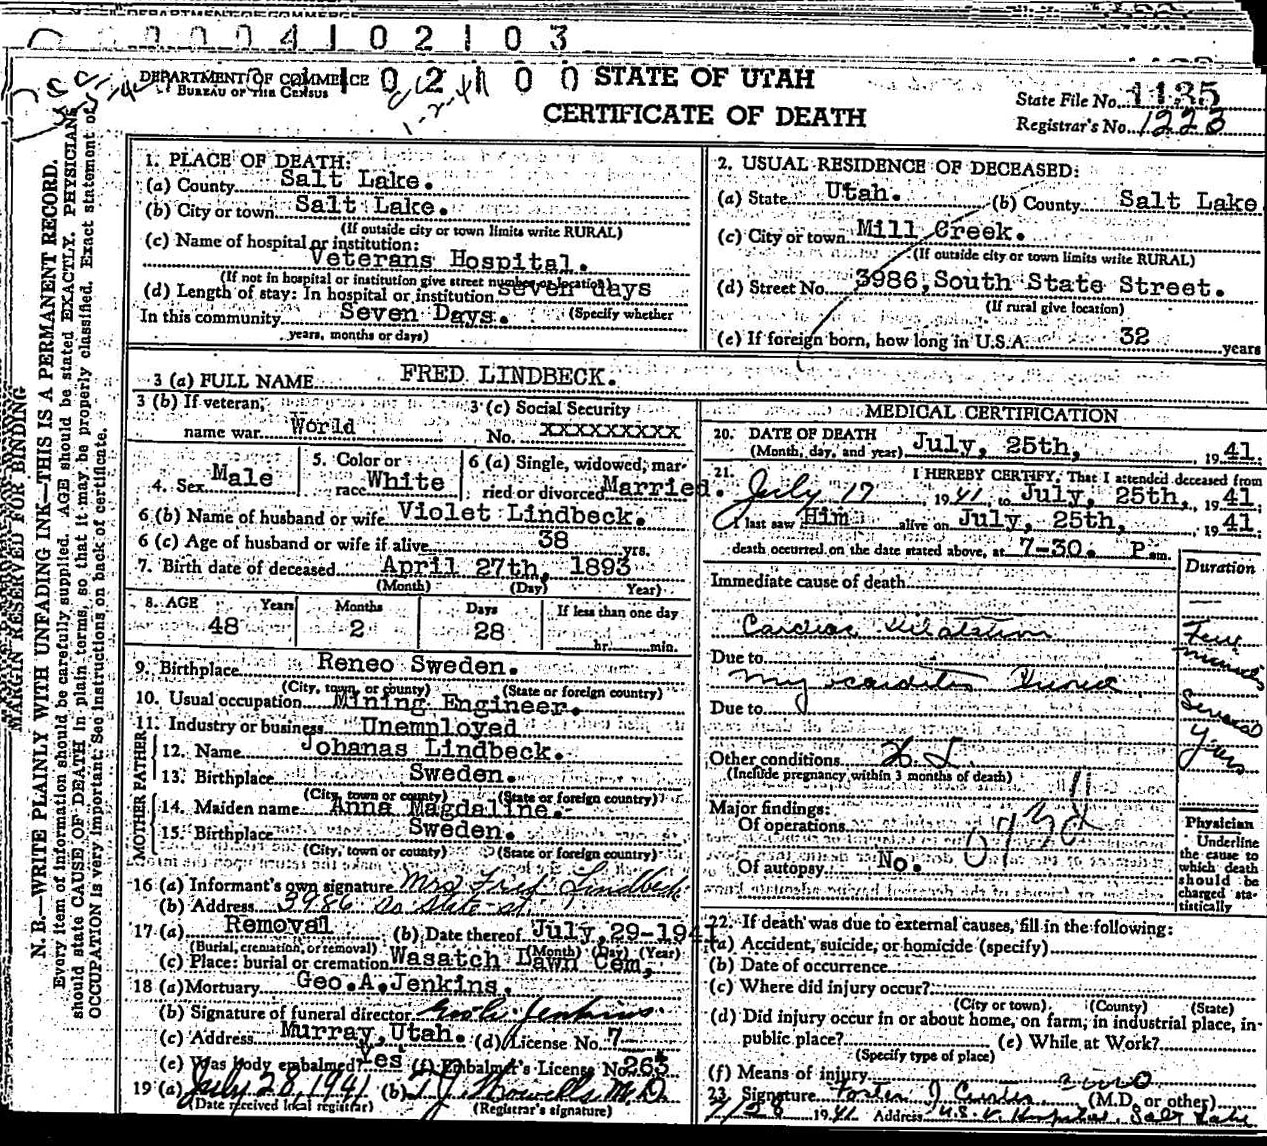 DEPARTMENT OF COMMERCE
0 0 0 0 4 1 0 2 1 0 3
DEPARTMENT OF COMMERCE
BUREAU OF THE CENSUS
0 2 1 0 0
STATE OF UTAH
CERTIFICATE OF DEATH
State File No. 1135
Registrar's No. 1223
MARGIN RESERVED FOR BINDING
N. B.—WRITE PLAINLY WITH UNFADING INK—THIS IS A PERMANENT RECORD.
Every item of information should be carefully supplied. AGE should be stated EXACTLY. PHYSICIAN
should state CAUSE OF DEATH in plain terms, so that it may be properly classified. Exact statement of
OCCUPATION is very important. See Instructions on back of certificate.
1. PLACE OF DEATH:
(a) County Salt Lake.
(b) City or town Salt Lake.
(If outside city or town limits write RURAL)
(c) Name of hospital or institution:
Veterans Hospital.
(If not in hospital or institution give street number or location)
(d) Length of stay: In hospital or institution seven days
In this community Seven Days. (Specify whether
years, months or days)
2. USUAL RESIDENCE OF DECEASED:
(a) State Utah. (b) County Salt Lake
(c) City or town Mill Creek.
(If outside city or town limits write RURAL)
(d) Street No. 3986, South State Street.
(If rural give location)
(e) If foreign born, how long in U.S.A. 32 years
3 (a) FULL NAME FRED LINDBECK.
3 (b) If veteran, name war World
3 (c) Social Security No. XXXXXXXXX
4. Sex Male
5. Color or race White
6 (a) Single, widowed, married or divorced Married.
6 (b) Name of husband or wife Violet Lindbeck.
6 (c) Age of husband or wife if alive 38 yrs.
7. Birth date of deceased April 27th, 1893
(Month) (Day) Year)
8. AGE Years Months Days If less than one day
48 2 28 hr. min.
9. Birthplace Reneo Sweden.
(City, town, or county) (State or foreign country)
10. Usual occupation Mining Engineer.
11. Industry or business Unemployed
FATHER
12. Name Johanas Lindbeck.
13. Birthplace Sweden.
(City, town or county) (State or foreign country)
MOTHER
14. Maiden name Anna Magdaline.
15. Birthplace Sweden.
(City, town or county) (State or foreign country)
16 (a) Informant's own signature Mrs Fred Lindbeck
(b) Address 3986 So State st.
17 (a) Removal (b) Date thereof July, 29-1941
(Burial, cremation, or removal) (Month) (Day) (Year)
(c) Place: burial or cremation Wasatch Lawn Cem,
18 (a) Mortuary Geo.A.Jenkins.
(b) Signature of funeral director Jenkins
(c) Address Murray, Utah. (d) License No. 7
(e) Was body embalmed? Yes (f) Embalmer's License No. 263
19 (a) July 28, 1941 (b) T J Howells M.D.
(Date received local registrar) (Registrar's signature)
MEDICAL CERTIFICATION
20. DATE OF DEATH
(Month, day, and year) July, 25th, 19 41.
21. I HEREBY CERTIFY, That I attended deceased from
July 17 19 41 to July, 25th, 19 41
I last saw Him alive on July, 25th, 19 41.
death occurred on the date stated above, at 7-30. P m.
Duration
Immediate cause of death
Cardiac Dilatation Few minutes
Due to
Myocarditis Several years
Due to
Other conditions
(Include pregnancy within 3 months of death)
Major findings:
Of operations
Of autopsy No.
Physician
Underline
the cause to
which death
should be
charged sta-
tistically
22. If death was due to external causes, fill in the following:
(a) Accident, suicide, or homicide (specify)
(b) Date of occurrence
(c) Where did injury occur?
(City or town) (County) (State)
(d) Did injury occur in or about home, on farm, in industrial place, in
public place? (e) While at Work?
(Specify type of place)
(f) Means of injury
23. Signature Foster J Curtis (M.D. or other)
7/28 19 41 Address U.S. V. Hospital, Salt Lake